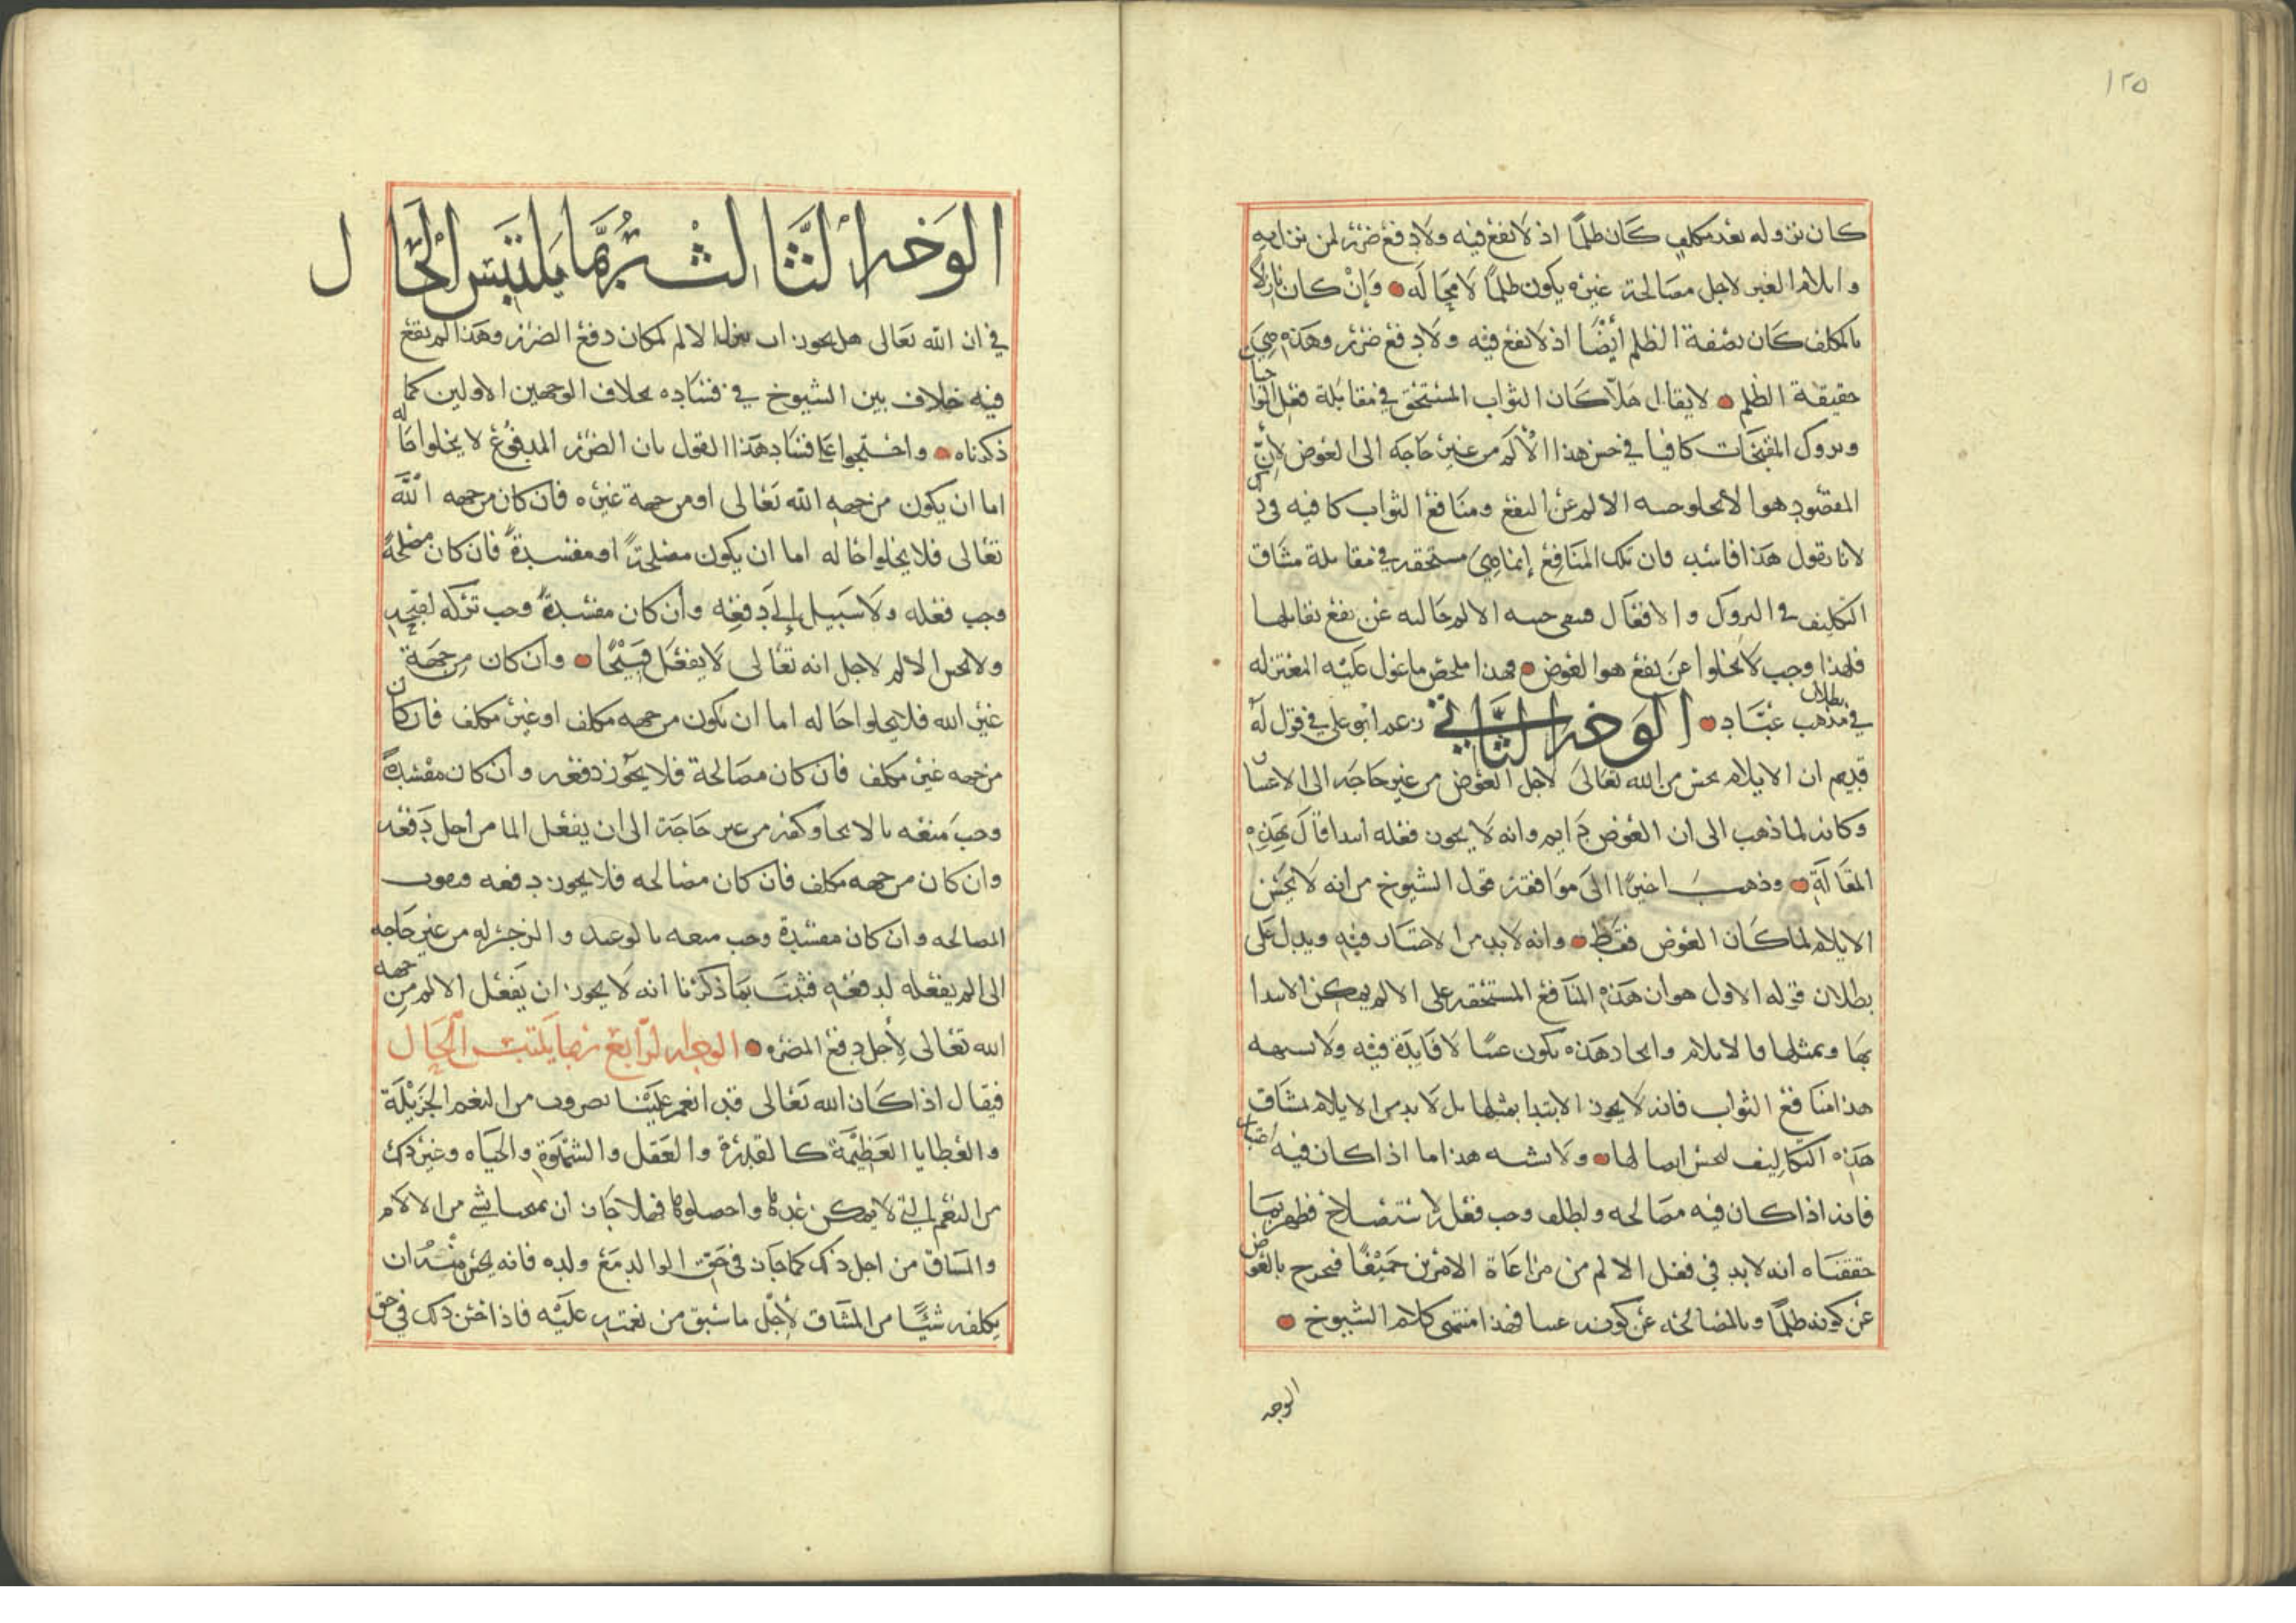 ١٢٥
كان نزوله بعد مكلف كان ظلما اذ لا نفع فيه ولا دفع ضرر لمن نزل به
وايلام الغير لاجل مصالحة غيره يكون ظلما لا محاله وإن كان نازلا
بالمكلف كان بصفة الظلم أيضا اذ لا نفع فيه ولا دفع ضرر وهذه هي
حقيقة الظلم لا يقال هلا كان الثواب المستحق في مقابلة فعل الواجبات
وتروك المقبحات كافيا في حسن هذا الألم من غير حاجه الى العوض لأن
المقصود هو الا يخلو حسه الالم عن النفع ومنافع الثواب كافيه في ذلك
لانا نقول هذا فاسد فان تلك المنافع إنما هي مستحقه في مقابلة مشاق
التكليف في التروك والافعال فبقي حسه الالم خاليه عن نفع يقابلها
فلهذا وجب لا يخلوا عن نفع هو العوض فهذا ملخص ما عول عليه المعتزله
في بطلان مذهب عباد الوجه الثاني زعم ابو علي في قول له
قديم ان الايلام يحسن من الله تعالى لاجل العوض من غير حاجه الى الاعتبار
وكانه لما ذهب الى ان العوض دايم وانه لا يجوز فعله ابتدا قال بهذه
المقالة وذهب اخيرا الى موافقة قول الشيوخ من انه لا يحسن
الايلام لمكان العوض فقط وانه لا بد من الاعتبار فيه ويدل على
بطلان قوله الاول هو ان هذه المنافع المستحقه على الالم يمكن الابتدا
بها وبمثلها فالايلام والحال هذه يكون عبثا لا فايدة فيه ولا يشبه
هذا منافع الثواب فانه لا يجوز الابتدا بمثلها بل لا بد من الايلام بمشاق
هذه التكاليف ليحسن ايصالها ولا يشبه هذا ما اذا كان فيه اعتبار
فانه اذا كان فيه مصالحه ولطف وجب فعله لاستصلاح فظهر بما
حققناه انه لا بد في فعل الالم من مراعاة الامرين جميعا فيخرج بالعوض
عن كونه ظلما وبالمصالحه عن كونه عبثا فهذا منتهى كلام الشيوخ
الوجه
الوجه الثالث ربما يلتبس الحال
في ان الله تعالى هل يجوز ان ينزل الالم لمكان دفع الضرر وهذا لم يقع
فيه خلاف بين الشيوخ في فساده بخلاف الوجهين الاولين كما
ذكرناه واحتجوا على فساد هذا القول بان الضرر المدفوع لا يخلوا حاله
اما ان يكون من جهه الله تعالى او من جهة غيره فان كان من جهه الله
تعالى فلا يخلوا حاله اما ان يكون مصلحة او مفسدة فان كان مصلحة
وجب فعله ولا سبيل إلى دفعه وان كان مفسدة وجب تركه لقبحه
ولا يحسن الالم لاجل انه تعالى لا يفعل قبيحا وان كان من جهة
غير الله فلا يخلوا حاله اما ان يكون من جهه مكلف او غير مكلف فان كان
من جهه غير مكلف فان كان مصالحة فلا يجوز دفعه وان كان مفسدة
وجب منعه بالالجا وكفه من غير حاجة الى ان يفعل الما من أجل دفعه
وان كان من جهه مكلف فان كان مصالحه فلا يجوز دفعه فيفوت
المصالحه وان كان مفسدة وجب منعه بالوعيد والزجر له من غير حاجه
الى الم يفعله لدفعه فثبت بما ذكرنا انه لا يجوز ان يفعل الالم من جهه
الله تعالى لأجل دفع المضره الوجه الرابع ربما يلتبس الحال
فيقال اذا كان الله تعالى قد انعم علينا بضروب من النعم الجزيلة
والعطايا العظيمة كالقدرة والعقل والشهوة والحياه وغير ذلك
من النعم التي لا يمكن عدها واحصاوها فهلا جاز ان يمتحنا بشي من الالام
والمشاق من اجل ذلك كما جاز في حق الوالد مع ولده فانه يحسن منه ان
يكلفه شيئا من المشاق لأجل ما سبق من نعمته عليه فاذا حسن ذلك في حق